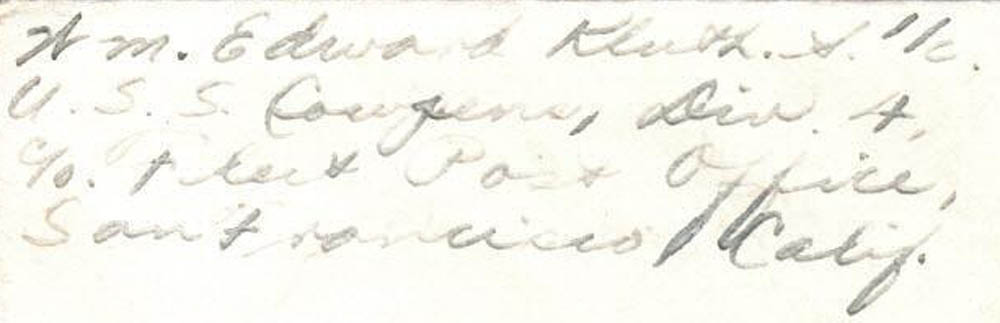 Wm. Edward Kluth. S. 1/c.
U.S.S. Cowpens, Div. 4,
c/o. Fleet Post Office,
San Francisco, Calif.